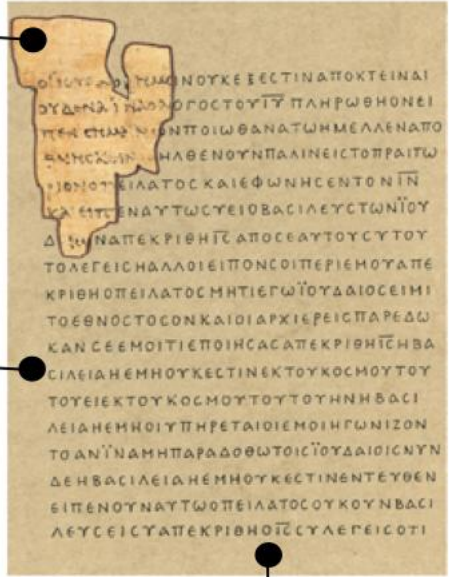 ΟΙΙΟΥΔΑΙΟΙΗΜΕΙΝΟΥΚΕΞΕCΤΙΝΑΠΟΚΤΕΙΝΑΙ
ΟΥΔΕΝΑΙΝΑΟΛΟΓΟCΤΟΥΙ̅Υ̅ΠΛΗΡΩΘΗΟΝΕΙ
ΠΕΝCΗΜΑΙΝΩΝΠΟΙΩΘΑΝΑΤΩΗΜΕΛΛΕΝΑΠΟ
ΘΝΗCΚΕΙΝΙCΗΛΘΕΝΟΥΝΠΑΛΙΝΕΙCΤΟΠΡΑΙΤΩ
ΡΙΟΝΟΠΕΙΛΑΤΟCΚΑΙΕΦΩΝΗCΕΝΤΟΝΙ̅Ν̅
ΚΑΙΕΙΠΕΝΑΥΤΩCΥΕΙΟΒΑCΙΛΕΥCΤΩΝΪΟΥ
ΔΑΙΩΝΑΠΕΚΡΙΘΗΙ̅C̅ΑΠΟCΕΑΥΤΟΥCΥΤΟΥ
ΤΟΛΕΓΕΙCΗΑΛΛΟΙΕΙΠΟΝCΟΙΠΕΡΙΕΜΟΥΑΠΕ
ΚΡΙΘΗΟΠΕΙΛΑΤΟCΜΗΤΙΕΓΩΪΟΥΔΑΙΟCΕΙΜΙ
ΤΟΕΘΝΟCΤΟCΟΝΚΑΙΟΙΑΡΧΙΕΡΕΙCΠΑΡΕΔΩ
ΚΑΝCΕΕΜΟΙΤΙΕΠΟΙΗCΑCΑΠΕΚΡΙΘΗΙ̅C̅ΗΒΑ
CΙΛΕΙΑΗΕΜΗΟΥΚΕCΤΙΝΕΚΤΟΥΚΟCΜΟΥΤΟΥ
ΤΟΥΕΙΕΚΤΟΥΚΟCΜΟΥΤΟΥΤΟΥΗΝΗΒΑCΙ
ΛΕΙΑΗΕΜΗΟΙΥΠΗΡΕΤΑΙΟΙΕΜΟΙΗΓΩΝΙΖΟΝ
ΤΟΑΝΪΝΑΜΗΠΑΡΑΔΟΘΩΤΟΙCΪΟΥΔΑΙΟΙCΝΥΝ
ΔΕΗΒΑCΙΛΕΙΑΗΕΜΗΟΥΚΕCΤΙΝΕΝΤΕΥΘΕΝ
ΕΙΠΕΝΟΥΝΑΥΤΩΟΠΕΙΛΑΤΟCΟΥΚΟΥΝΒΑCΙ
ΛΕΥCΕΙCΥΑΠΕΚΡΙΘΗΟΙ̅C̅CΥΛΕΓΕΙCΟΤΙ